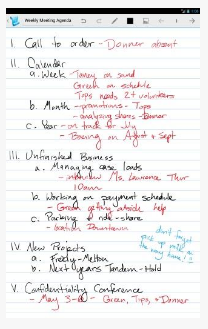 Weekly Meeting Agenda
I. Call to order - Donner absent
II. Calendar
a. Week - Tomey on sand
Green on schedule
Tops needs 2+ volunteers
b. Month - promotions - Tops
- analyzing shares - Donner
c. Year - on track for July
- Boeing on August + Sept
III. Unfinished Business
a. Managing case loads
- interview Ms. Lawrence Thur
10am
b. Working on payment schedule
- Green getting outside help
c. Parking + ride-share
- location Downtown
don't forget
pick up milk on
the way home!!
IV. New Projects
a. Freddy-Melton
b. Next years Tandem - Hold
V. Confidentiality Conference
- May 3- - Green, Tips, + Donner